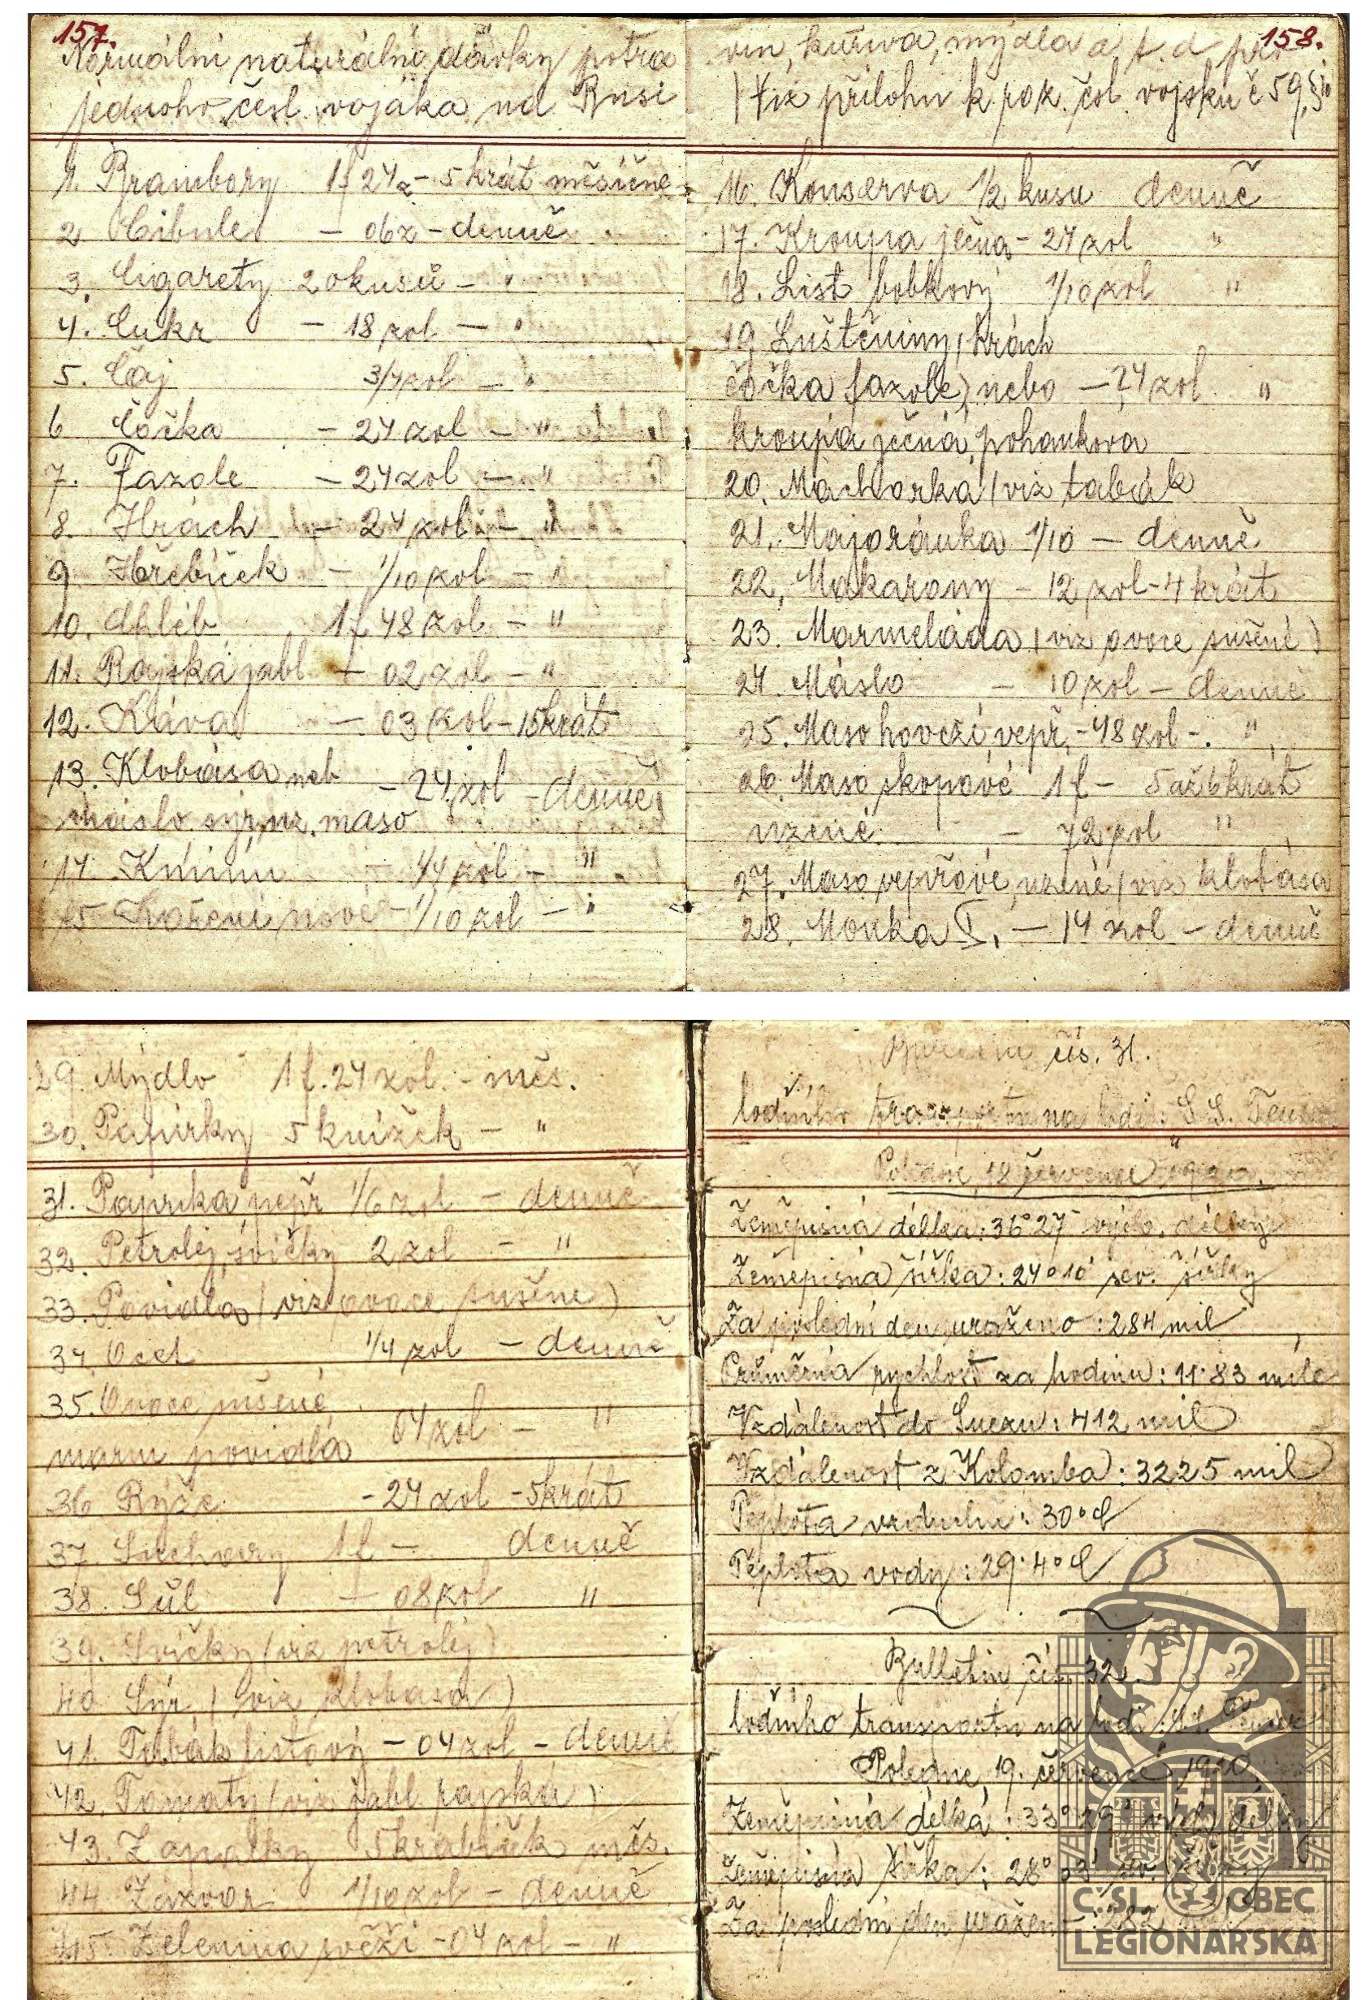 157.
Normální naturální dávky potra
jednoho česl. vojáka na Rusi
1. Brambory 1f 24z - 5krát měsíčne
2 Cibule - 06z - denně
3. Cigarety 20kusů - "
4. Cukr - 18 zol - "
5. Čaj 3/4zol - "
6 Čočka - 24 zol - "
7. Fazole - 24zol - "
8. Hrách - 24 zol - "
9 Hřebíček - 1/10 zol - "
10. Chléb 1f 48 zol - "
11. Rajská jabl - 02 zol - "
12. Káva - 03 zol - 15krát
13. Klobása neb - 24 zol - denně
máslo, sýr, uz. maso
14. Kmínu - 1/4 zol - "
15 Koření nové - 1/10 zol - "
158.
vin, kuřiva, mýdla a t. d pro
/Viz přílohu k roz. čsl. vojsku č 59, §10
16. Konserva 1/2 kusu denně
17. Kroupa ječná - 24 zol "
18. List bobkový 1/10 zol "
19 Luštěniny, hrách
čočka fazole, nebo - 24 zol "
kroupa ječná, pohanková
20. Machorka (viz tabák
21. Majoránka 1/10 - denně
22. Makarony - 12 zol - 4 krát
23. Marmeláda (viz ovoce sušené)
24. Máslo - 10 zol - denně
25. Maso hovězí, vepř. - 48 zol - "
26. Maso skopové 1f - 5až6krát
uzené - 72 zol "
27. Maso vepřové, uzené (viz klobása
28. Mouka I, - 14 zol - denně
29. Mýdlo 1f. 24 zol. - měs.
30. Papírky 5 knížek - "
31. Paprika, pepř 1/6 zol - denně
32. Petrolej, svíčky 2 zol - "
33. Povidla (viz ovoce sušené)
34. Ocet 1/4 zol - denně
35. Ovoce sušené
marm povidla 04 zol - "
36 Rýže - 24 zol - 5krát
37. Suchary 1f - denně
38. Sůl - 08 zol "
39. Svíčky (viz petrolej)
40 Sýr (viz klobása)
41. Tabák listový - 04 zol - denně
42. Tomaty (viz jabl. rajská)
43. Zápalky 5krabiček měs.
44 Zázvor 1/10 zol - denně
45 Zelenina svěží - 04 zol - "
Bulletin čís. 31.
lodního transportu na lodi: S. S.
Poledne, 18 července 1920.
Zeměpisná délka: 36° 27' vých. délky
Zeměpisná šířka: 24° 10' sev. šířky
Za poslední den uraženo: 284 mil
Průměrná rychlost za hodinu: 11·83 míle
Vzdálenost do Suezu: 412 mil
Vzdálenost z Kolomba: 3225 mil
Teplota vzduchu: 30° C
Teplota vody: 29·4° C
Bulletin čís. 32.
lodního transportu na lodi:
Poledne, 19. července 1920,
Zeměpisná délka: 33° 29' vých délky
Zeměpisná šířka: 28° 03' sev. šířky
Za poslední den uraženo: 282
ČSL. OBEC
LEGIONÁŘSKÁ